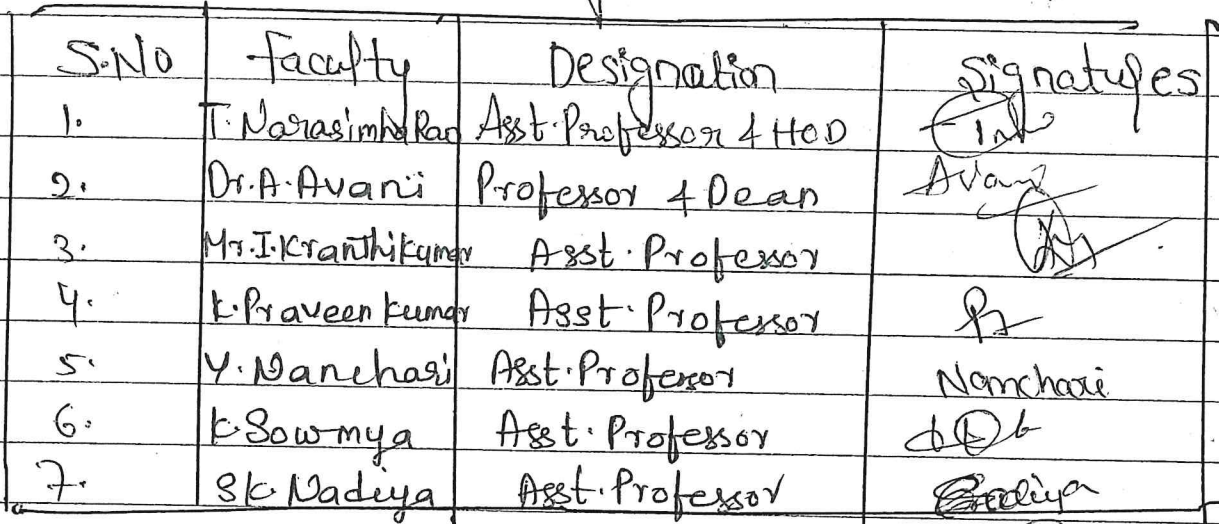 S.No Faculty Designation Signatures
1. T. Narasimha Rao Asst. Professor & HOD
2. Dr. A. Avani Professor & Dean Avani
3. Mr. I. Kranthikumar Asst. Professor
4. K. Praveen kumar Asst. Professor
5. Y. Nanchari Asst. Professor Namchari
6. K. Sowmya Asst. Professor
7. SK. Nadiya Asst. Professor